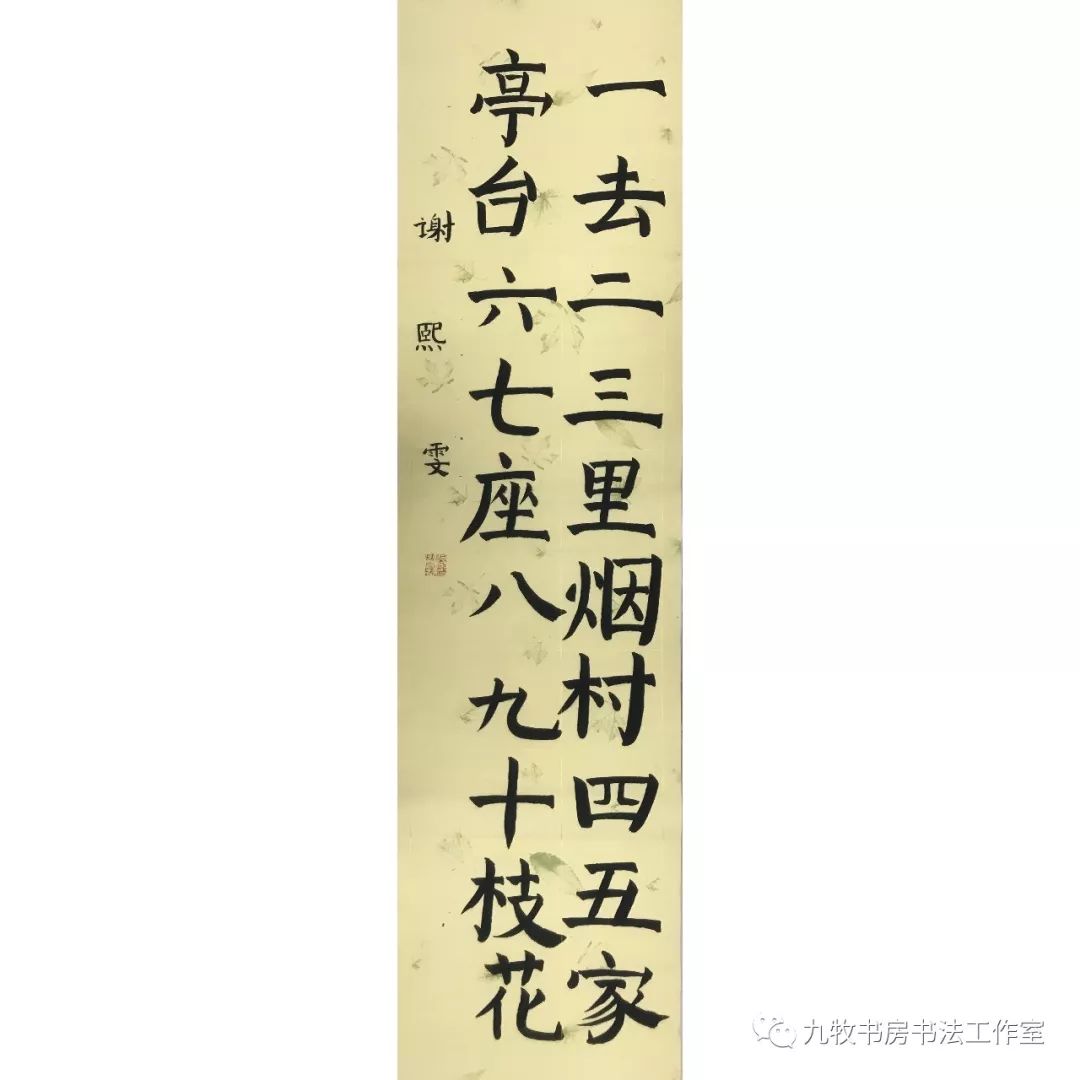 一去二三里烟村四五家
亭台六七座八九十枝花
谢熙雯
九牧书房书法工作室